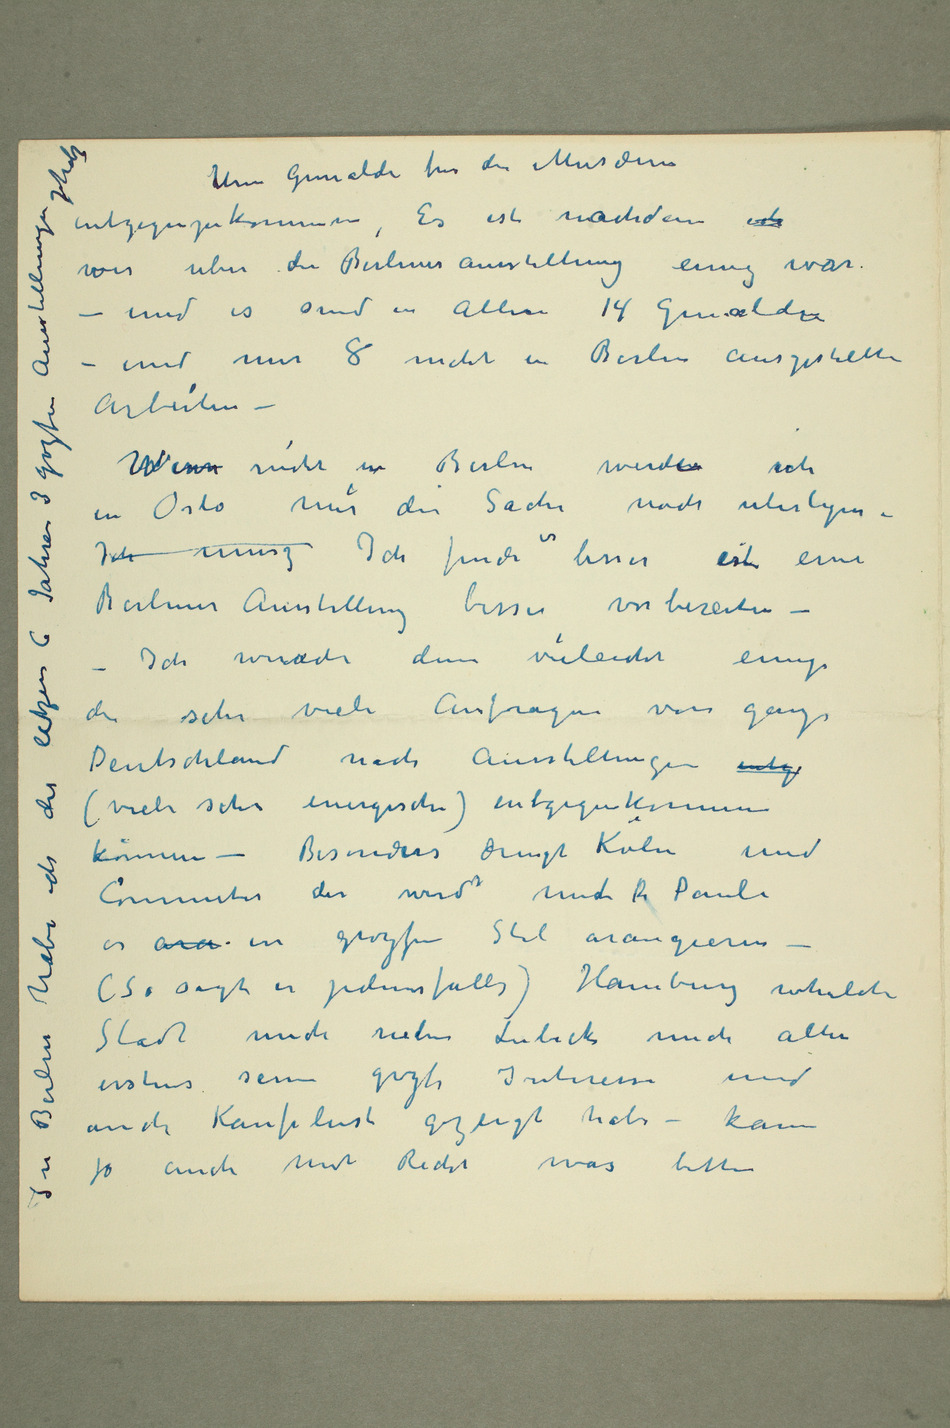 Um Gemälde für die Museum
entgegenzukommen, Es ist nachdem ich
wir über die Berlinerausstellung einig war.
– und es sind in Allem 14 Gemälden
– und nur 8 nicht in Berlin ausgestellte
Arbeiten –
Wenn nicht in Berlin werden ich
in Oslo mir die Sache noch uberlegen –
Ich musz Ich finde es besser ist eine
Berliner Ausstellung besser vorbereiten –
– Ich würde dem vieleicht einige
die sehr viele Anfragen von ganze
Deutschland nach Ausstellungen entg
(viele sehr energische) entgegenkommen
können – Besonders drengt Köln und
Commeter der wird mit Dr Pauli
es ara in groszen Stil arangieren –
(So sagt er jedemsfalls) Hamburg whelche
Stadt mich neben Lubeck mich alter
erstens seine groszte Interesse und
auch Kauflust gezeigt habe – kann
jo auch mit Recht was bitten
In Berlin habe ich die letzen 6 Jahren 3 groszen Ausstellungen gehabt